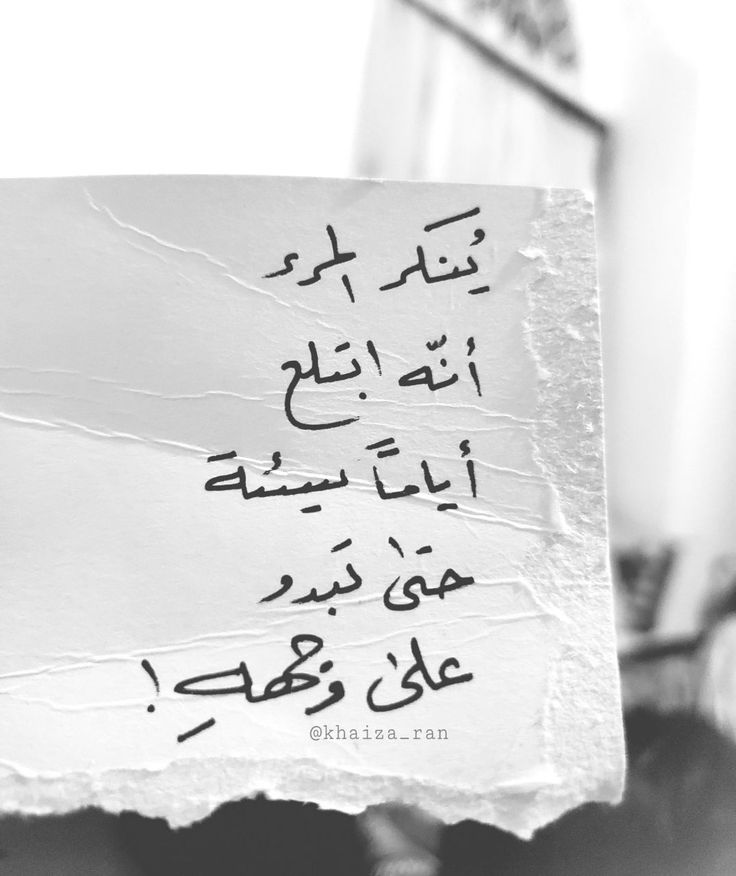 يُنكر المرء
أنّه ابتلع
أياماً سيئة
حتىٰ تَبدو
علىٰ وَجههِ !
@khaiza_ran